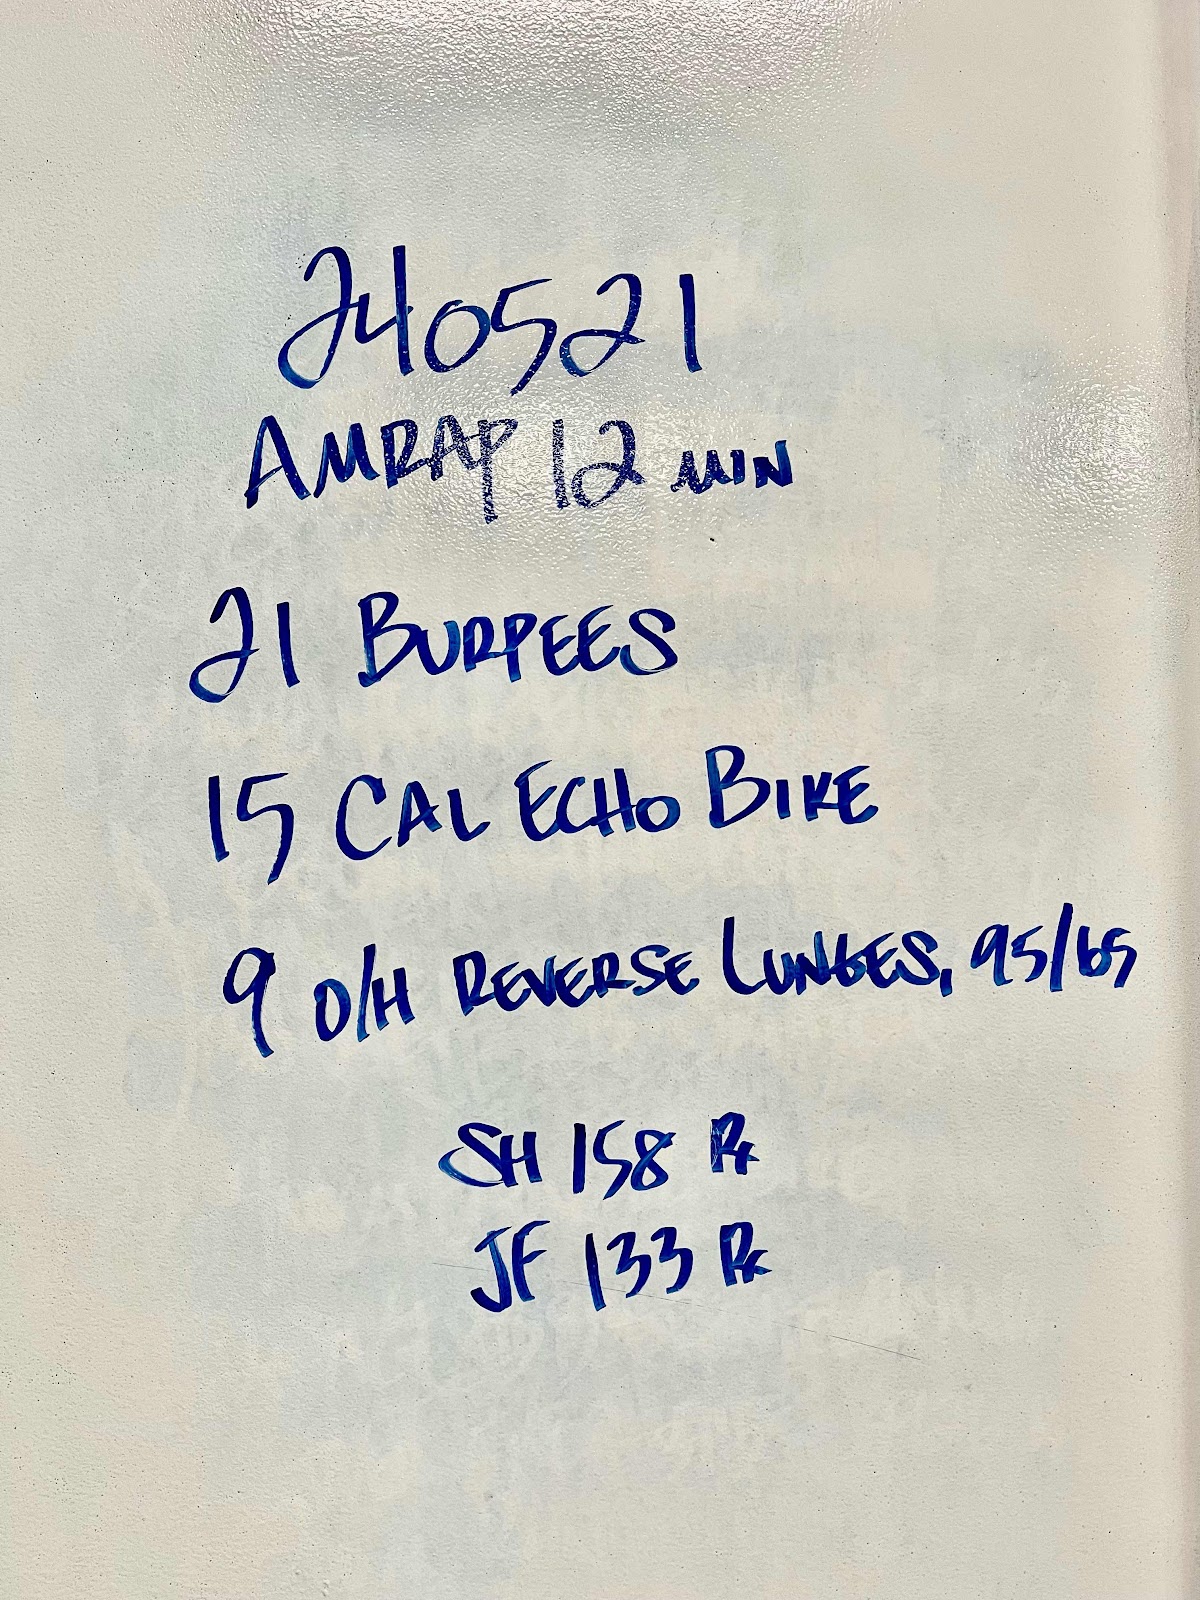 240521
AMRAP 12 MIN
21 BURPEES
15 CAL ECHO BIKE
9 O/H REVERSE LUNGES, 95/65
SH 158 Rx
JF 133 Rx